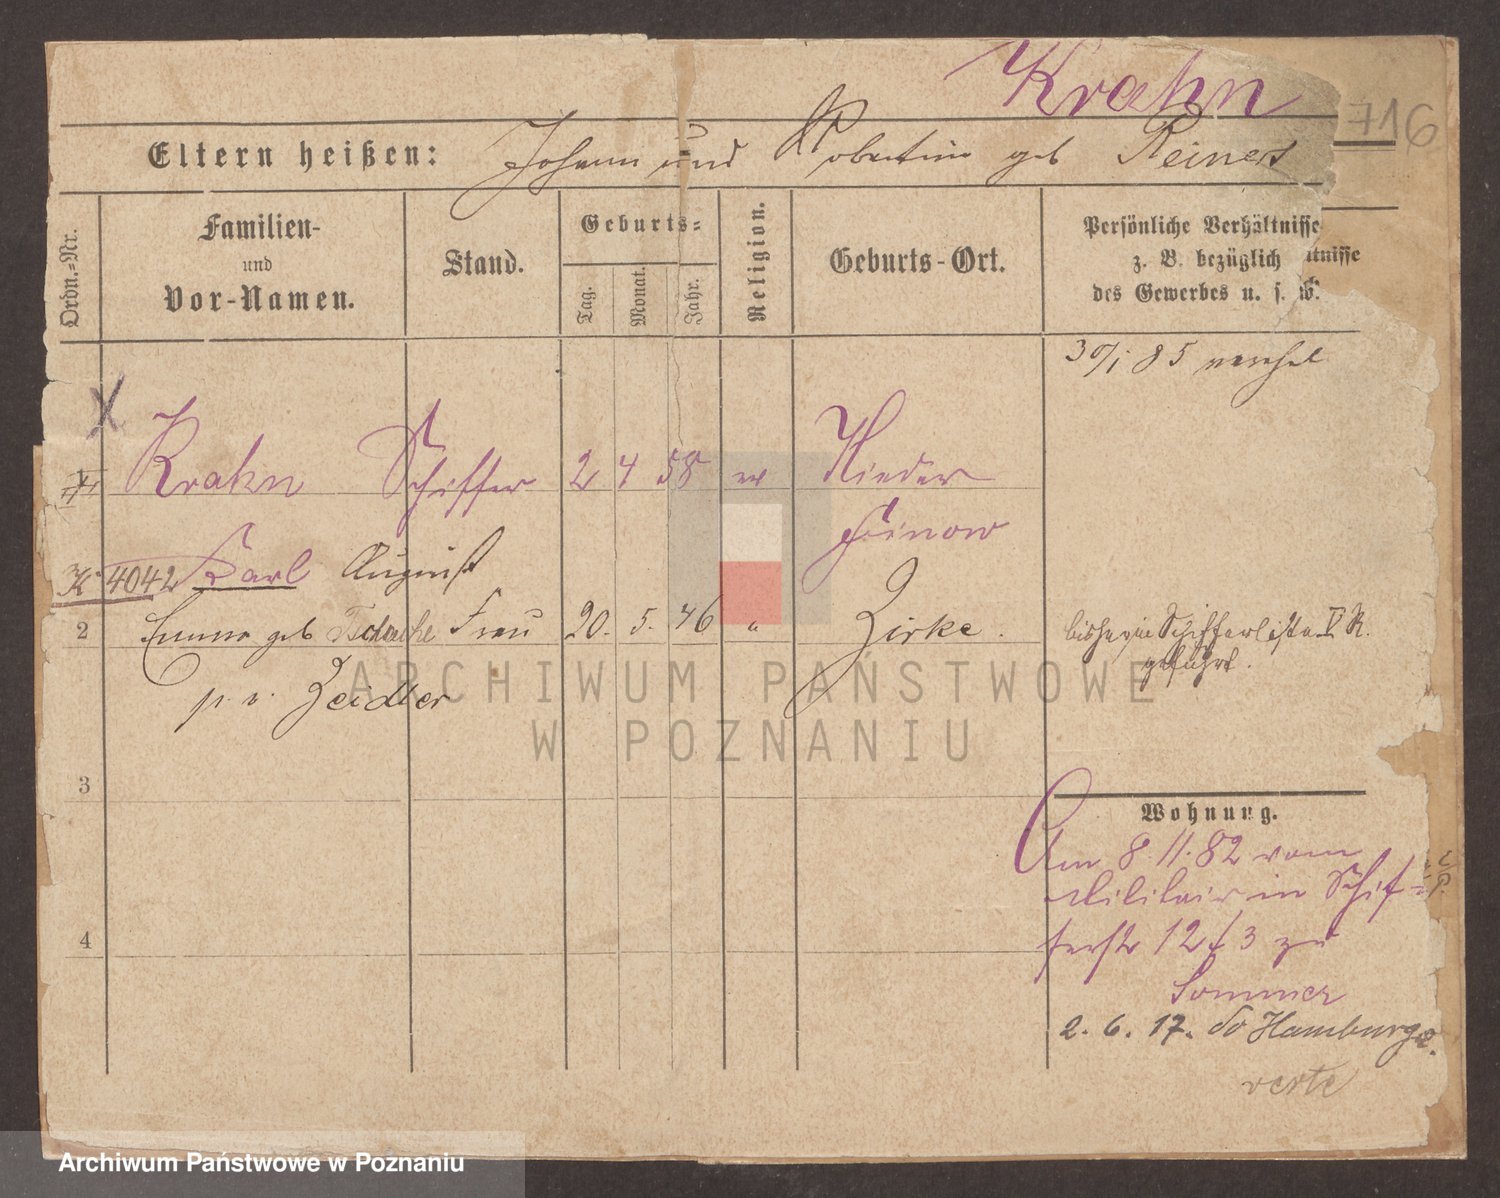 Krahn
716
Eltern heißen: Johann und Robertine geb Reinert
Ordn.-Nr.
Familien-
und
Vor-Namen.
Stand.
Geburts-
Tag.
Monat.
Jahr.
Religion.
Geburts-Ort.
Persönliche Verhältnisse
z. B. bezüglich
des Gewerbes u. s. w.
tnisse
30/1 85
Krahn Schiffer 2 4 58 ev Nieder
Finow
K 4042 Karl August
2 Emma geb Frau 20. 5. 46 " Zirke.
bisher in Schifferliste V R.
geführt.
p. v. Zeidler
3
Wohnung.
Am 8.11.82 vom
Militair in Schif-
ferstr 12/13 zu
Sommer
4
2. 6. 17. do Hamburg
verte
ARCHIWUM PAŃSTWOWE
W POZNANIU
Archiwum Państwowe w Poznaniu